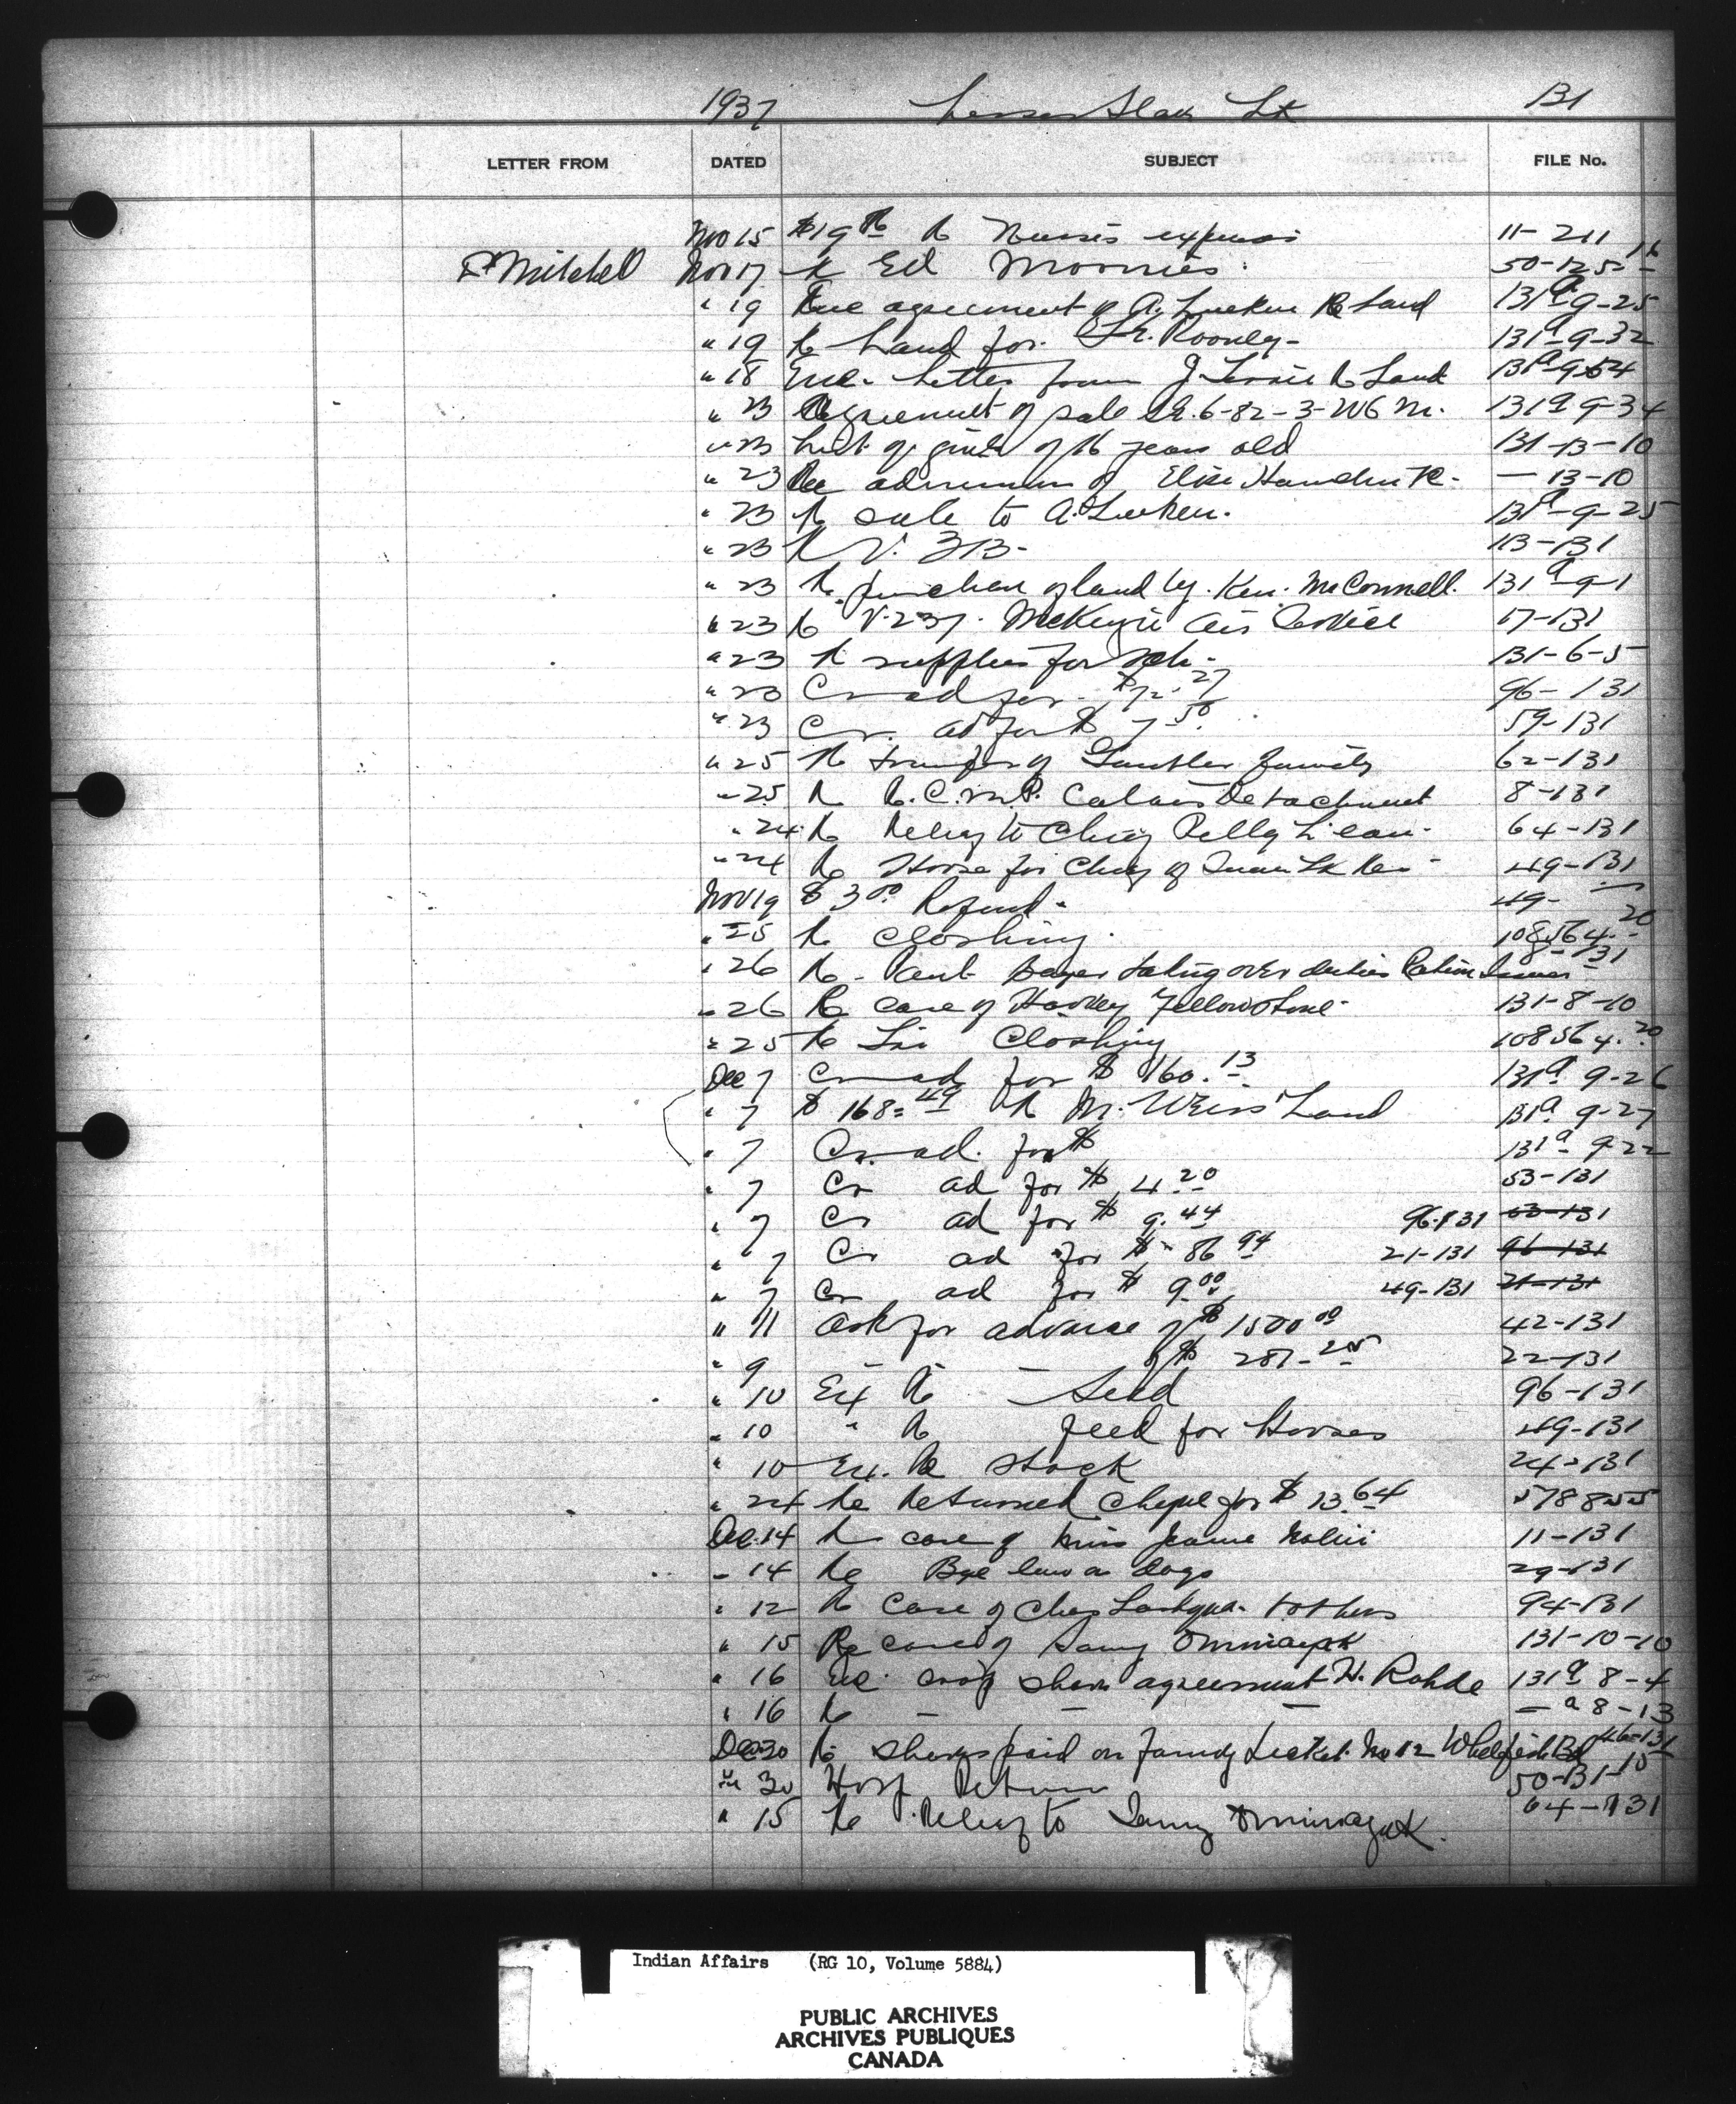 1937 Lesser Slave Lk 131
LETTER FROM DATED SUBJECT FILE No.
Nov 15 Re Nurses expenses 11-211
Dr Mitchell Nov 17 Re Ed Moonies. 50-125-16
" 19 Enc agreement of A. Lueken Re Land 131a-9-25
" 19 Re Land for Rooney- 131a-9-32
" 18 Enc. Letter from J. Re Land
" 23 Agreement of sale 6-82-3-W6 M. 131a 9-34
" 23 List of girls of 16 years old 131-13-10
" 23 Re admission of Elise — 13-10
" 23 Re sale to A. Lueken. 131a-9-25
" 23 Re V. 313- 113-131
" 23 Re purchase of land by Ken. McConnell. 131a-9-1
" 23 Re V-237. McKenzie Air Service 17-131
" 23 Re supplies for Sch- 131-6-5
" 20 Cr ad for $72.27 96-131
" 23 Cr. ad for $ 7.50 59-131
" 25 Re transfer of family 62-131
" 25 Re R.C.M.P. Calais Detachment 8-131
" 24 Re Relief to Chief 64-131
" 24 Re Horse for Chief of Lk Res 49-131
Nov 19 $ 3.00 Refund - 49-
" 25 Re Clothing. 108564-20
" 26 Re - taking over duties Ration Issuer 8-131
" 26 Re case of Harvey Yellowstone- 131-8-10
" 25 Re Clothing 108564.20
Dec 7 Cr ad for $ 160.13 131a 9-26
" 7 $ 168.49 Re M. Weiss' Land 131a 9-27
" 7 Cr. ad. for $ 131a 9-22
" 7 Cr ad for $ 4.20 53-131
" 7 Cr ad for $ 9.44 96-131 63-131
" 7 Cr ad for $ 86.94 21-131 96-131
" 7 Cr ad for $ 9.00 49-131 21-131
" 11 Ask for advance of $ 1500.00 42-131
" 9 — — of $ 22-131
" 10 Ex Re Seed 96-131
" 10 " Re feed for Horses 49-131
" 10 Ex. Re Stock 24-131
" 24 Re Returned Cheque for $ 13.64 578855
Dec. 14 Re case of Miss Jeanne 11-131
" 14 Re Bye law a dogs 29-131
" 12 Re Case of Chas & others 94-131
" 15 Re case of Samy Ominayak 131-10-10
" 16 Enc. crop share agreement H. Rohde 131a 8-4
" 16 Re — — — — a 8-13
Dec 30 Re paid on Family ticket No 12 Whitefish 46-131
" 30 Hosp Return 50-131-10
" 15 Re Relief to Samy Ominayak. 64-131
Indian Affairs (RG 10, Volume 5884)
PUBLIC ARCHIVES
ARCHIVES PUBLIQUES
CANADA